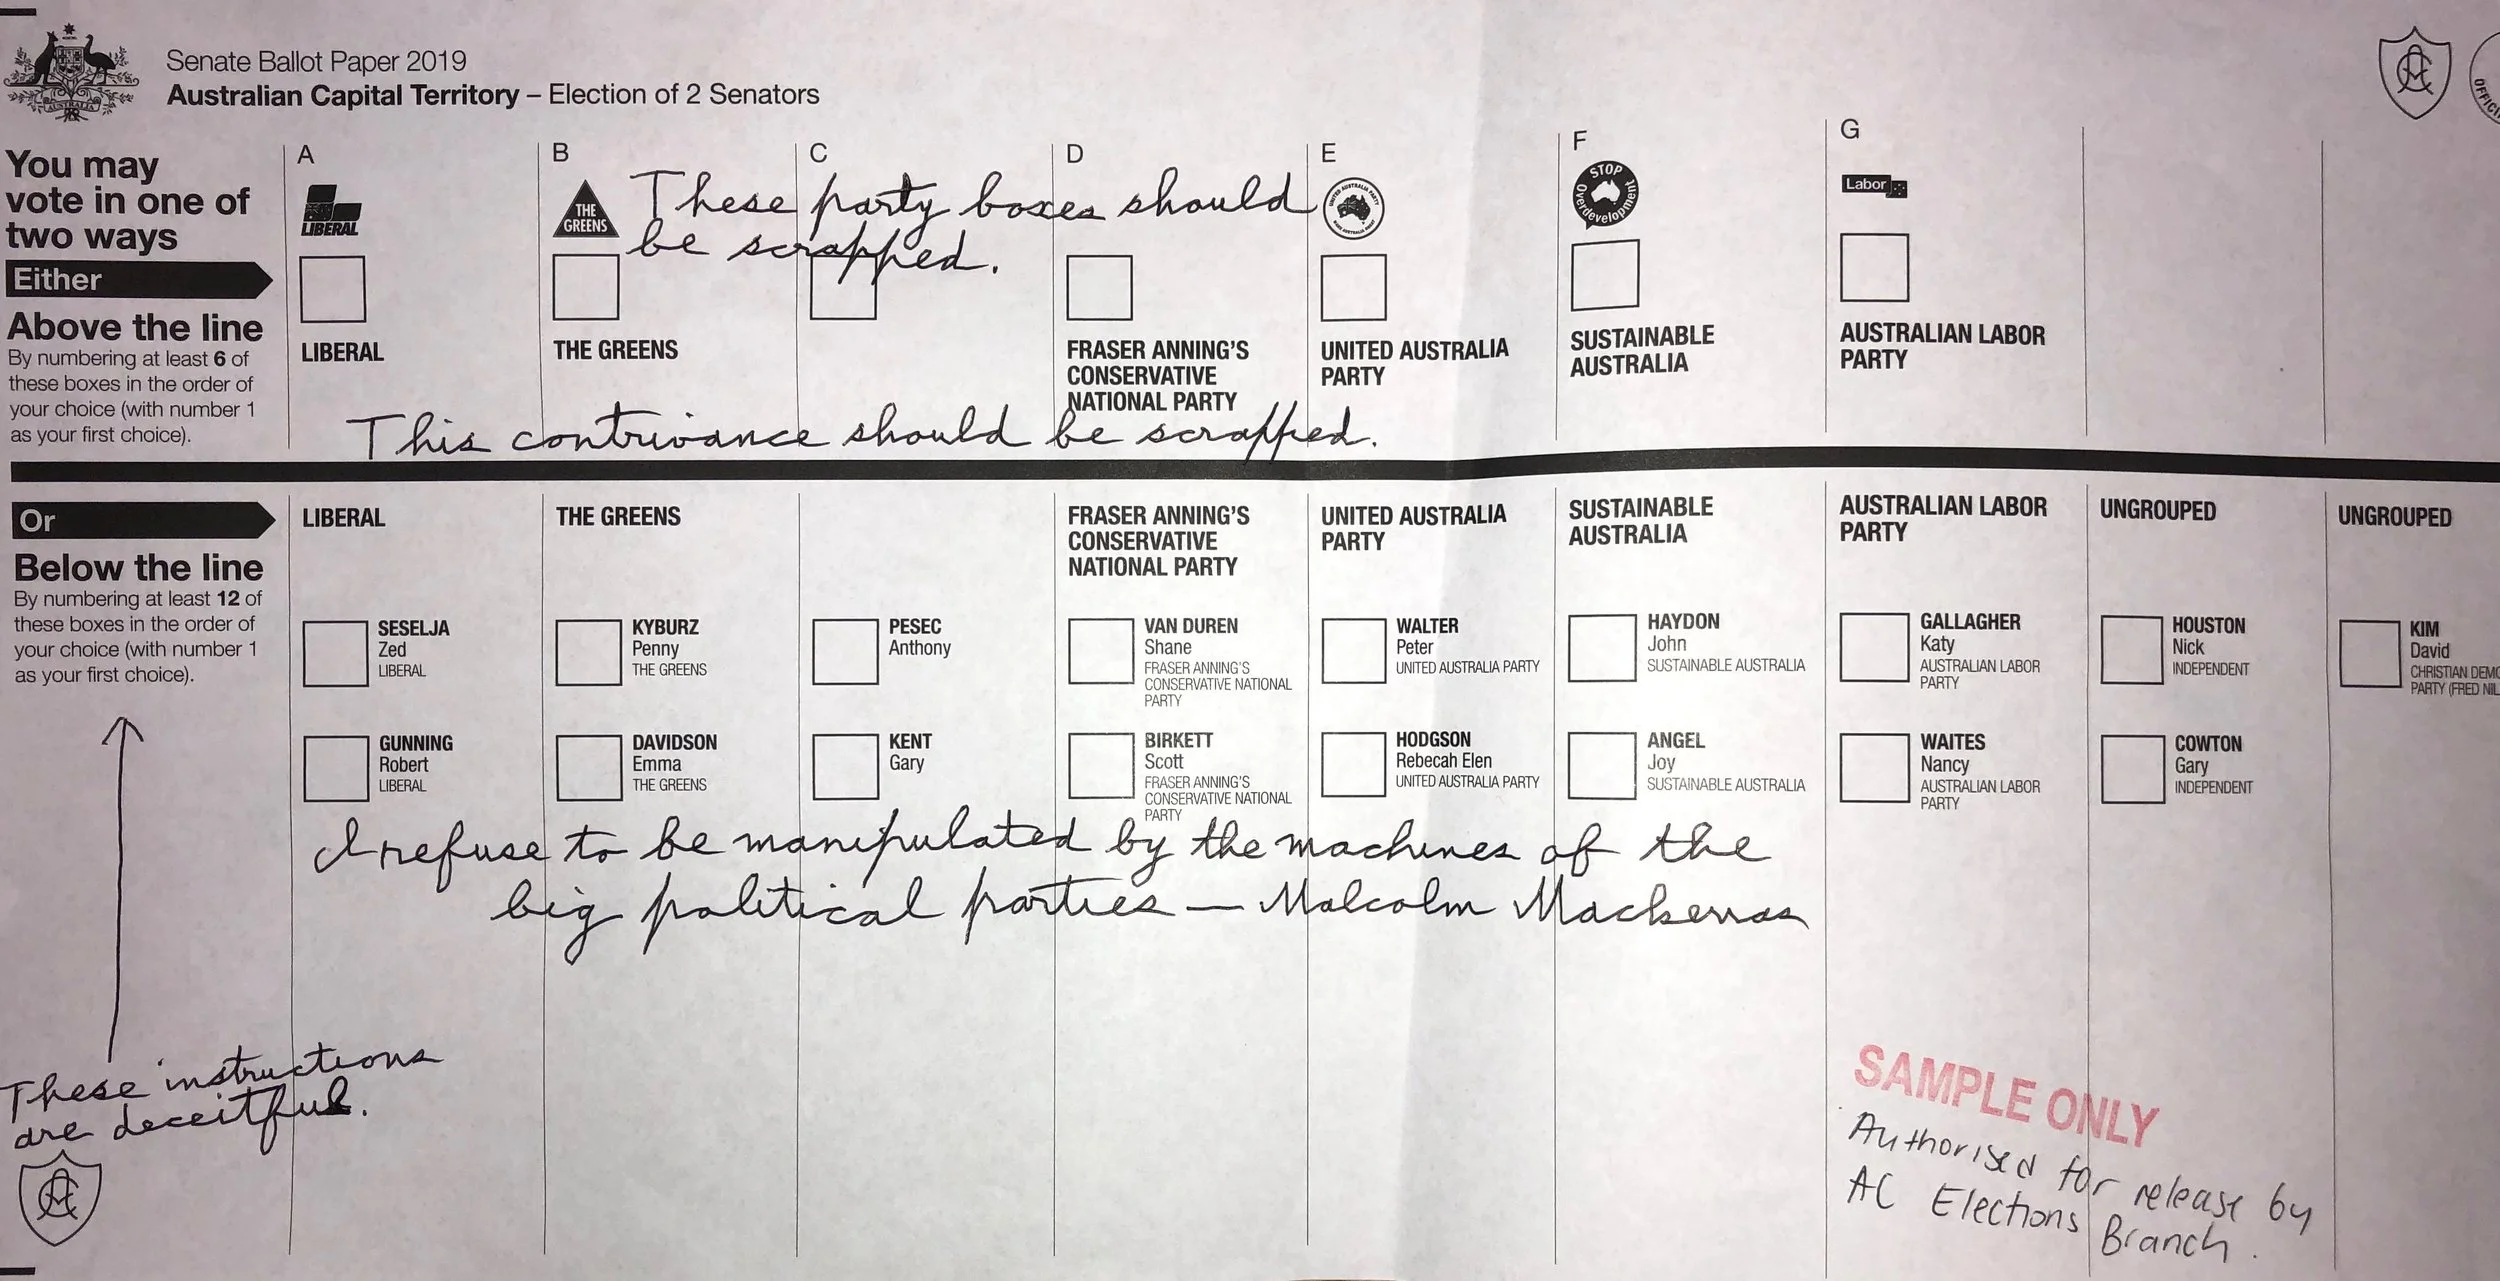 Senate Ballot Paper 2019
Australian Capital Territory – Election of 2 Senators
AUSTRALIA
You may
vote in one of
two ways
Either
Above the line
By numbering at least 6 of
these boxes in the order of
your choice (with number 1
as your first choice).
A
LIBERAL
LIBERAL
B
THE
GREENS
THE GREENS
C
D
FRASER ANNING'S
CONSERVATIVE
NATIONAL PARTY
E
UNITED AUSTRALIA PARTY
UNITED AUSTRALIA
PARTY
F
STOP
Overdevelopment
SUSTAINABLE
AUSTRALIA
G
Labor
AUSTRALIAN LABOR
PARTY
These party boxes should
be scrapped.
This contrivance should be scrapped.
Or
Below the line
By numbering at least 12 of
these boxes in the order of
your choice (with number 1
as your first choice).
LIBERAL
SESELJA
Zed
LIBERAL
GUNNING
Robert
LIBERAL
THE GREENS
KYBURZ
Penny
THE GREENS
DAVIDSON
Emma
THE GREENS
PESEC
Anthony
KENT
Gary
FRASER ANNING'S
CONSERVATIVE
NATIONAL PARTY
VAN DUREN
Shane
FRASER ANNING'S
CONSERVATIVE NATIONAL
PARTY
BIRKETT
Scott
FRASER ANNING'S
CONSERVATIVE NATIONAL
PARTY
UNITED AUSTRALIA
PARTY
WALTER
Peter
UNITED AUSTRALIA PARTY
HODGSON
Rebecah Elen
UNITED AUSTRALIA PARTY
SUSTAINABLE
AUSTRALIA
HAYDON
John
SUSTAINABLE AUSTRALIA
ANGEL
Joy
SUSTAINABLE AUSTRALIA
AUSTRALIAN LABOR
PARTY
GALLAGHER
Katy
AUSTRALIAN LABOR
PARTY
WAITES
Nancy
AUSTRALIAN LABOR
PARTY
UNGROUPED
HOUSTON
Nick
INDEPENDENT
COWTON
Gary
INDEPENDENT
UNGROUPED
KIM
David
CHRISTIAN DEMO
PARTY (FRED NIL
I refuse to be manipulated by the machines of the
big political parties — Malcolm Mackerras
These instructions
are deceitful.
SAMPLE ONLY
Authorised for release by
AC Elections Branch.
OFFIC